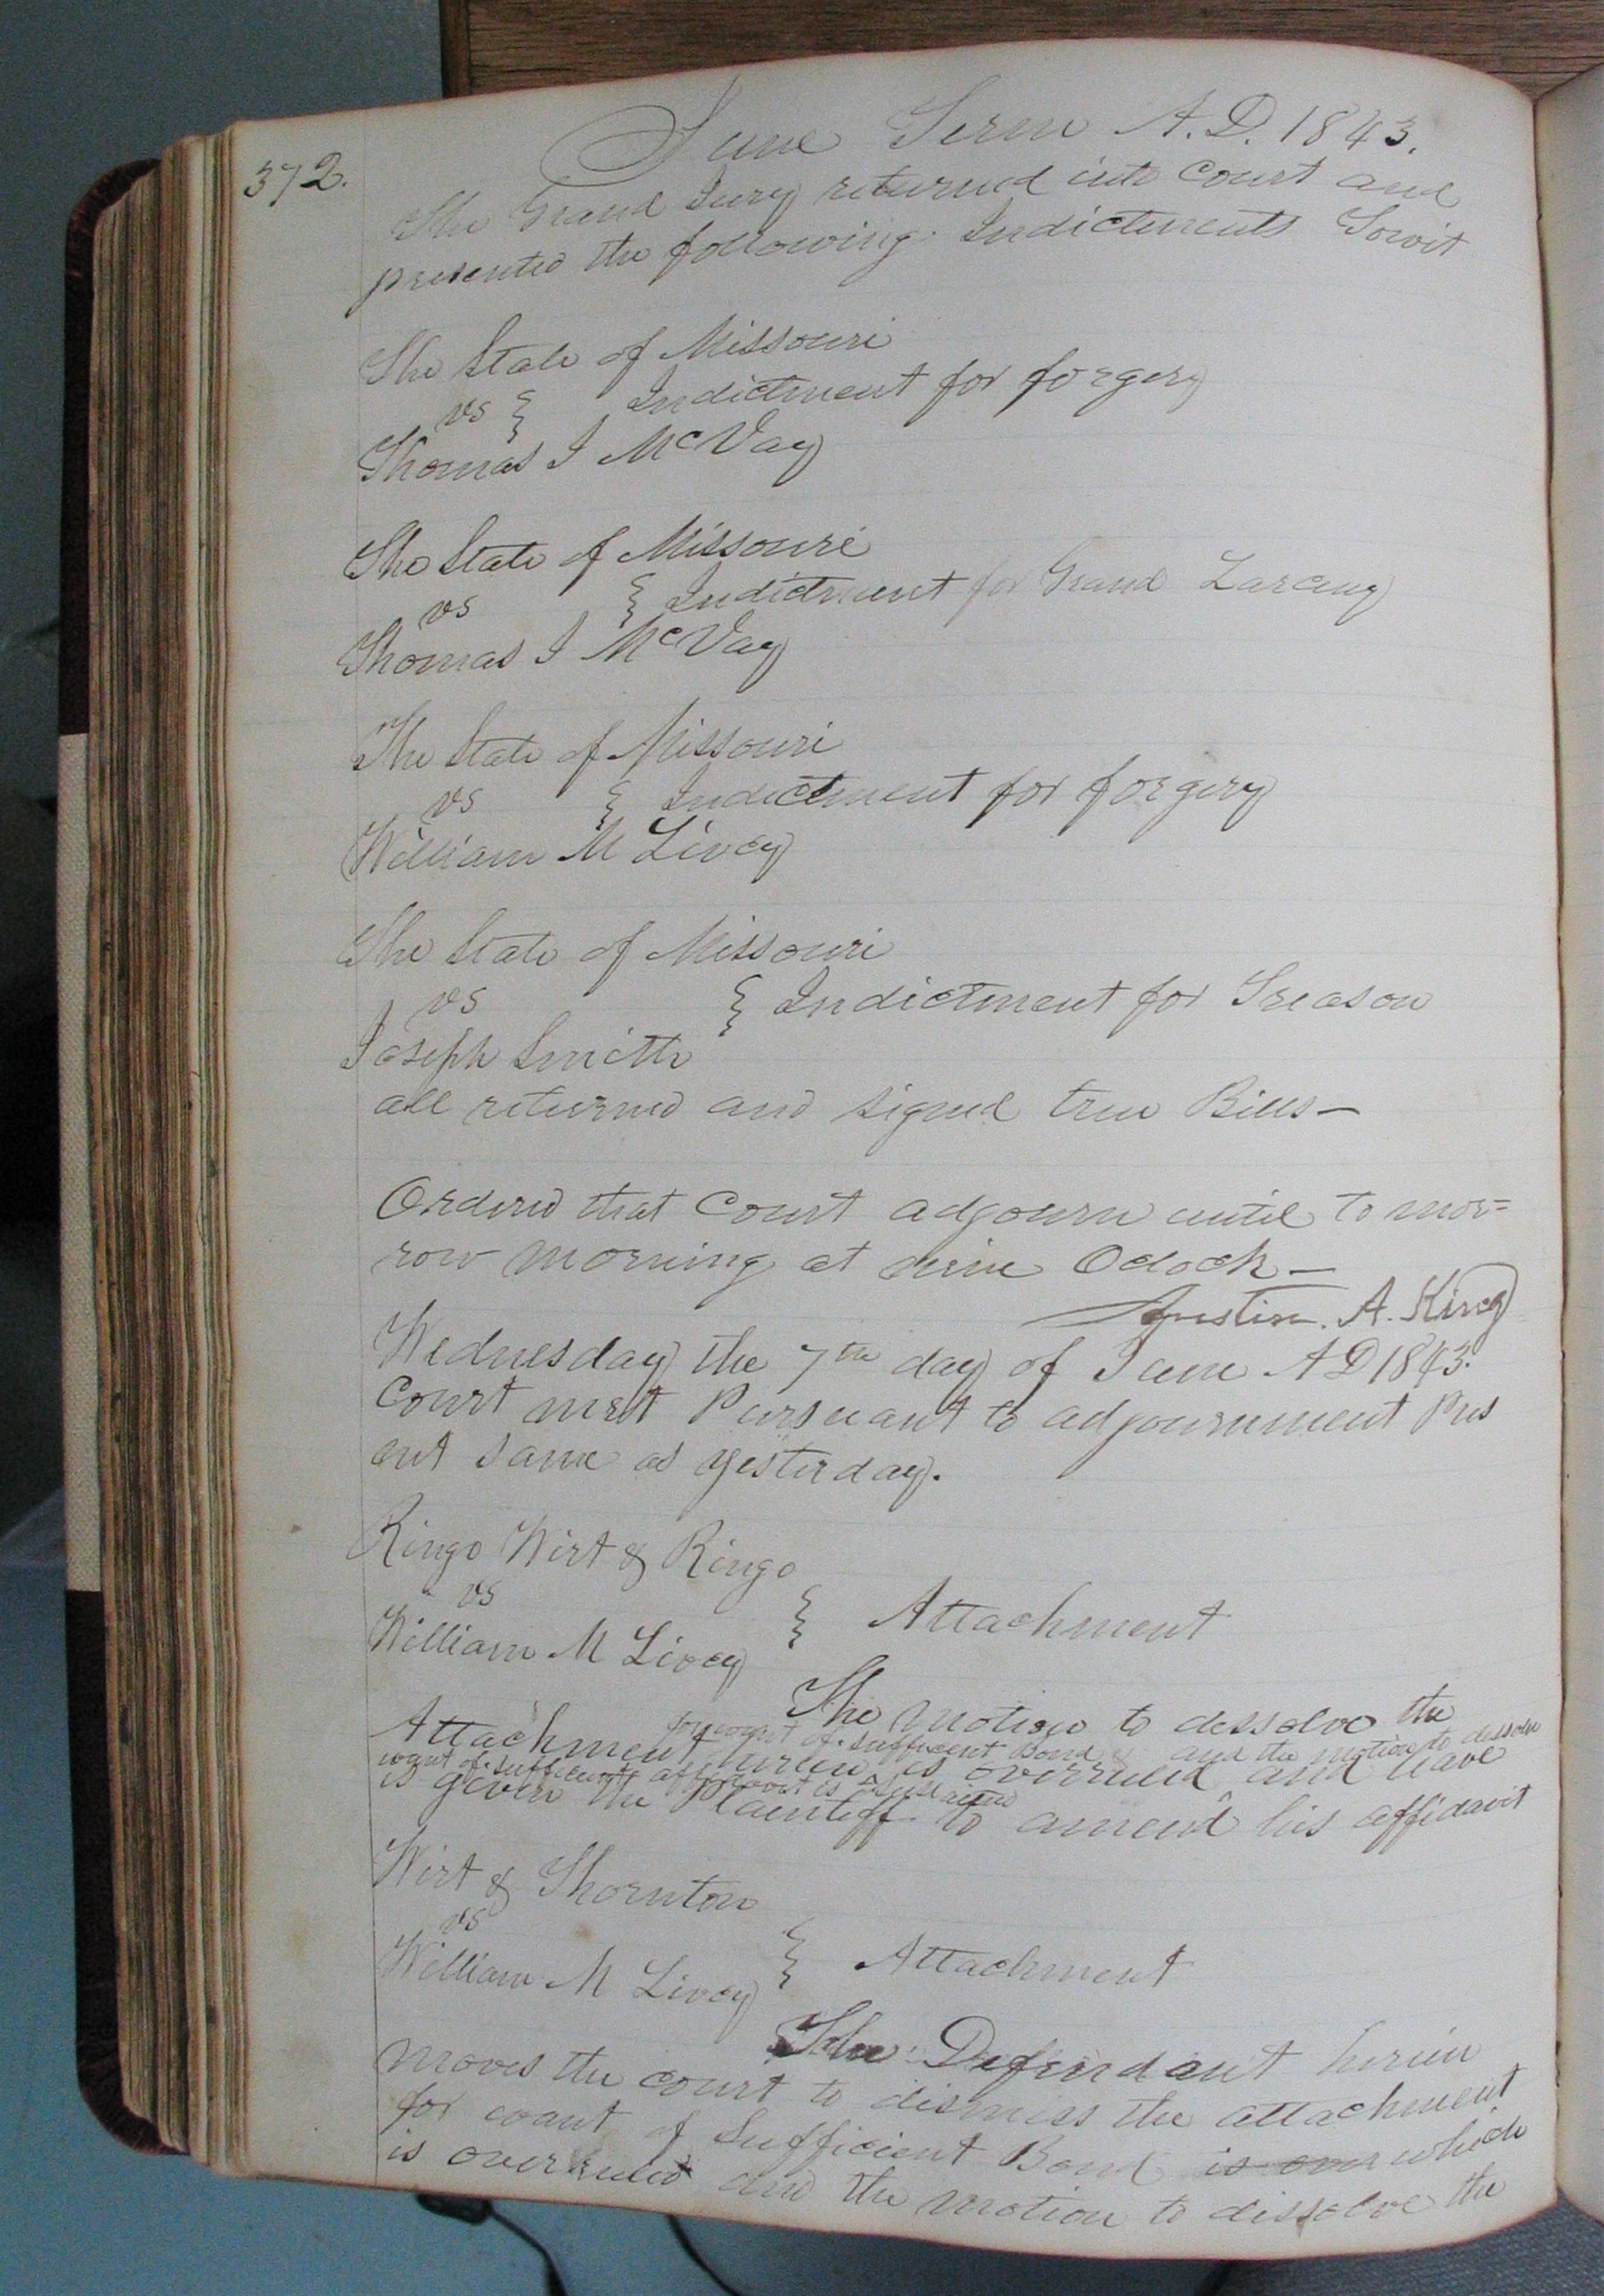 372.
June Term A.D. 1843.
The Grand Jury returned into Court and
presented the following Indictments Towit
The State of Missouri
vs { Indictment for forgery
Thomas J McVay
The State of Missouri
vs { Indictment for Grand Larceny
Thomas J McVay
The State of Missouri
vs { Indictment for forgery
William M Livey
The State of Missouri
vs { Indictment for Treason
Joseph Smith
all returned and signed true Bills—
Ordered that Court adjourn until to mor=
row morning at nine Oclock—
Austin. A. King
Wednesday the 7th day of June AD 1843.
Court met Pursuant to adjournment Pres
ent same as yesterday.
Ringo Wirt & Ringo
vs
{ Attachment
William M Livey
The motion to dessolve the
for want of sufficient Bond and the motion to dissolve
Attachment herein is overruled and leave
want of sufficient affidavit is sustained
is given the Plaintiff to amend his affidavit
Wirt & Thornton
vs
{ Attachment
William M Livey
The Defendant herein
moves the court to dismiss the attachment
for want of Sufficient Bond is over which
is overruled and the motion to dissolve the